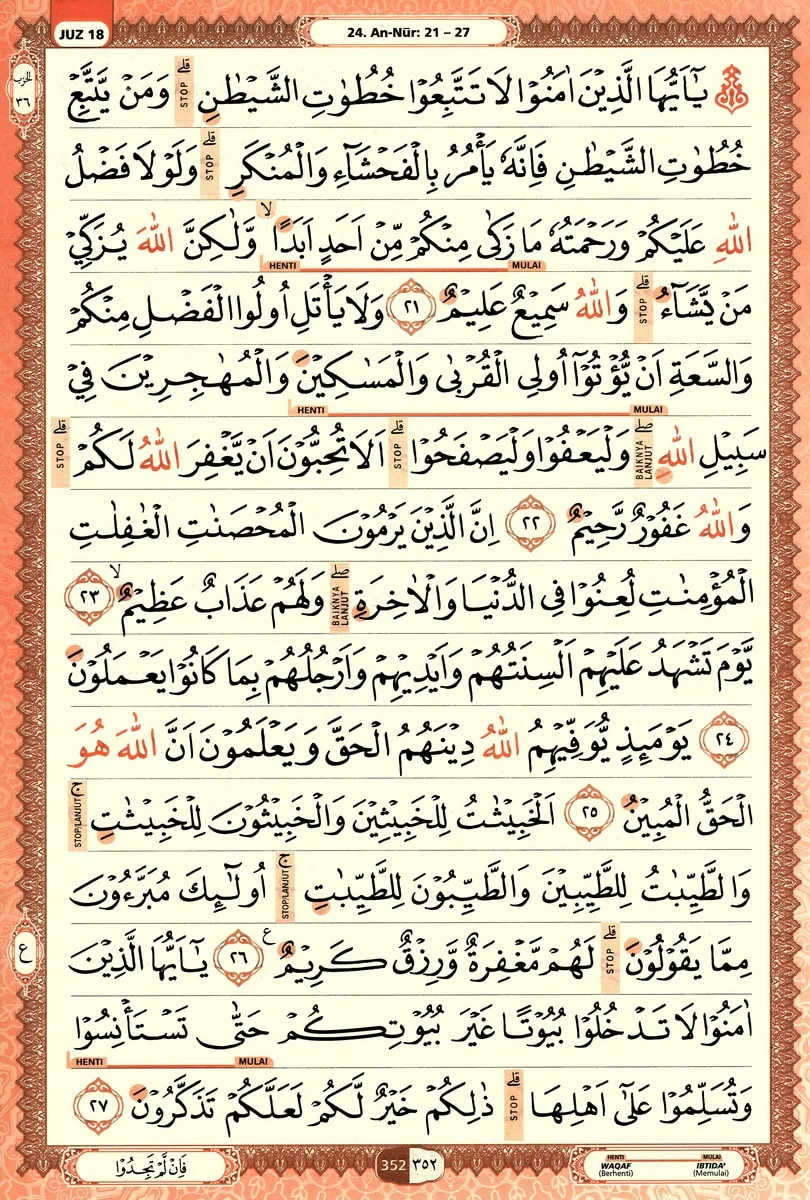 JUZ 18
24. An-Nūr: 21 – 27
الحزب
٣٦
يٰٓاَيُّهَا الَّذِيْنَ اٰمَنُوْا لَا تَتَّبِعُوْا خُطُوٰتِ الشَّيْطٰنِ ۗ STOP وَمَنْ يَّتَّبِعْ
خُطُوٰتِ الشَّيْطٰنِ فَاِنَّهٗ يَأْمُرُ بِالْفَحْشَاۤءِ وَالْمُنْكَرِ ۗ STOP وَلَوْلَا فَضْلُ
اللّٰهِ عَلَيْكُمْ وَرَحْمَتُهٗ مَا زَكٰى مِنْكُمْ مِّنْ اَحَدٍ اَبَدًا ۙ وَّلٰكِنَّ اللّٰهَ يُزَكِّيْ
HENTI MULAI
مَنْ يَّشَاۤءُ ۗ STOP وَاللّٰهُ سَمِيْعٌ عَلِيْمٌ ٢١ وَلَا يَأْتَلِ اُولُوا الْفَضْلِ مِنْكُمْ
وَالسَّعَةِ اَنْ يُّؤْتُوْٓا اُولِى الْقُرْبٰى وَالْمَسٰكِيْنَ وَالْمُهٰجِرِيْنَ فِيْ
HENTI MULAI
سَبِيْلِ اللّٰهِ ۖ BAIKNYA LANJUT وَلْيَعْفُوْا وَلْيَصْفَحُوْا ۗ STOP اَلَا تُحِبُّوْنَ اَنْ يَّغْفِرَ اللّٰهُ لَكُمْ ۗ STOP
وَاللّٰهُ غَفُوْرٌ رَّحِيْمٌ ٢٢ اِنَّ الَّذِيْنَ يَرْمُوْنَ الْمُحْصَنٰتِ الْغٰفِلٰتِ
الْمُؤْمِنٰتِ لُعِنُوْا فِى الدُّنْيَا وَالْاٰخِرَةِ ۖ BAIKNYA LANJUT وَلَهُمْ عَذَابٌ عَظِيْمٌ ۙ ٢٣
يَّوْمَ تَشْهَدُ عَلَيْهِمْ اَلْسِنَتُهُمْ وَاَيْدِيْهِمْ وَاَرْجُلُهُمْ بِمَا كَانُوْا يَعْمَلُوْنَ
٢٤ يَوْمَىِٕذٍ يُّوَفِّيْهِمُ اللّٰهُ دِيْنَهُمُ الْحَقَّ وَيَعْلَمُوْنَ اَنَّ اللّٰهَ هُوَ
الْحَقُّ الْمُبِيْنُ ٢٥ اَلْخَبِيْثٰتُ لِلْخَبِيْثِيْنَ وَالْخَبِيْثُوْنَ لِلْخَبِيْثٰتِ ۚ STOP/LANJUT
وَالطَّيِّبٰتُ لِلطَّيِّبِيْنَ وَالطَّيِّبُوْنَ لِلطَّيِّبٰتِ ۚ STOP/LANJUT اُولٰۤىِٕكَ مُبَرَّءُوْنَ
مِمَّا يَقُوْلُوْنَ ۗ STOP لَهُمْ مَّغْفِرَةٌ وَّرِزْقٌ كَرِيْمٌ ࣖ ٢٦ يٰٓاَيُّهَا الَّذِيْنَ
ع
اٰمَنُوْا لَا تَدْخُلُوْا بُيُوْتًا غَيْرَ بُيُوْتِكُمْ حَتّٰى تَسْتَأْنِسُوْا
HENTI MULAI
وَتُسَلِّمُوْا عَلٰٓى اَهْلِهَا ۗ STOP ذٰلِكُمْ خَيْرٌ لَّكُمْ لَعَلَّكُمْ تَذَكَّرُوْنَ ٢٧
فَاِنْ لَّمْ تَجِدُوْا
352 ٣٥٢
HENTI MULAI
WAQAF IBTIDA'
(Berhenti) (Memulai)